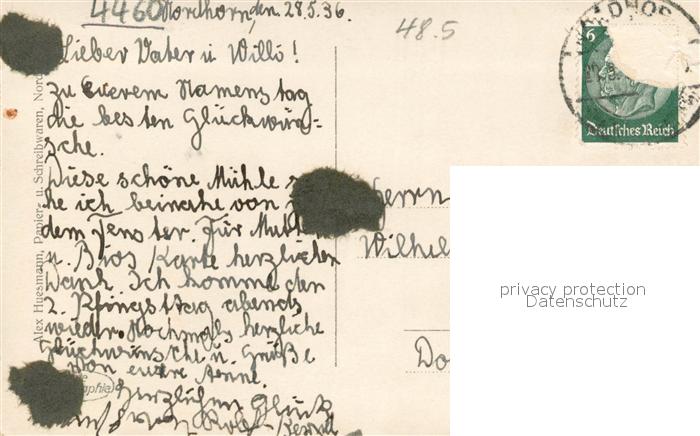 4460
Nordhorn, den 28.5.36.
48.5
Lieber Vater u Willi!
zu Euerem Namenstag
die besten Glückwün-
sche.
Diese schöne Mühle s
he ich beinahe von
dem Fenster. Für Mutt
u. Karte herzlichen
Dank. Ich komme den
2. Pfingsttag abends
wieder. Nochmals herzliche
Glückwünsche u. Grüße
von eurer Änne.
Herzlichen Glück
Alex Huesmann, Papier- u. Schreibwaren, Nord
Herrn
Wilhel
Do
6
Deutsches Reich
privacy protection
Datenschutz